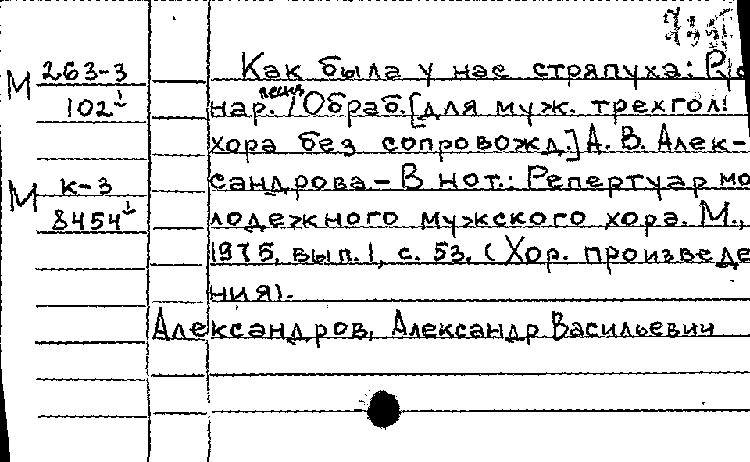 М 263-3
102
Как была у нас стряпуха: Рус
песня
нар. / Обраб. [для муж. трехгол.
хора без сопровожд.] А. В. Алек-
М к-3
сандрова. – В нот.: Репертуар мо
8454
лодежного мужского хора. М.,
1975, вып. 1, с. 53. (Хор. произведе
ния).
Александров, Александр Васильевич